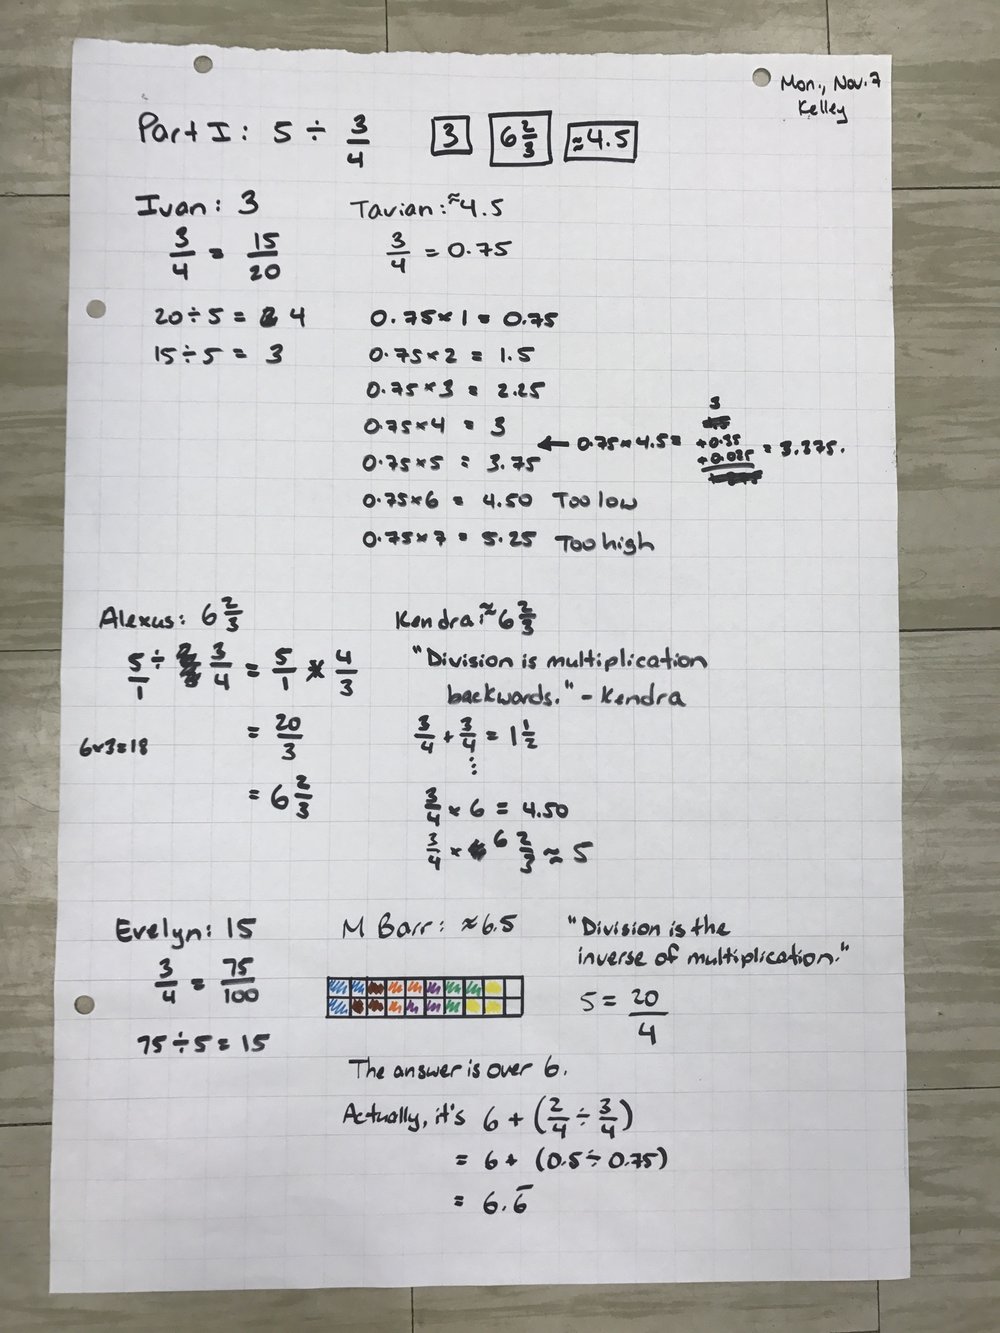 Mon., Nov. 7
Kelley
Part I: 5 ÷ 3/4 3 6 2/3 ≈4.5
Ivan: 3
3/4 = 15/20
20÷5 = 4
15÷5 = 3
Tavian: ≈4.5
3/4 = 0.75
0.75×1 = 0.75
0.75×2 = 1.5
0.75×3 = 2.25
0.75×4 = 3
← 0.75×4.5= 3 +0.35 +0.025 = 3.375.
0.75×5 = 3.75
0.75×6 = 4.50 Too low
0.75×7 = 5.25 Too high
Alexus: 6 2/3
5/1 ÷ 3/4 = 5/1 × 4/3
= 20/3
6×3=18
= 6 2/3
Kendra: ≈6 2/3
"Division is multiplication
backwards." - Kendra
3/4 + 3/4 = 1 1/2
⋮
3/4 × 6 = 4.50
3/4 × 6 2/3 ≈ 5
Evelyn: 15
3/4 = 75/100
75÷5=15
M Barr: ≈6.5
"Division is the
inverse of multiplication."
5 = 20/4
The answer is over 6.
Actually, it's 6 + (2/4 ÷ 3/4)
= 6+ (0.5÷0.75)
= 6.6̅